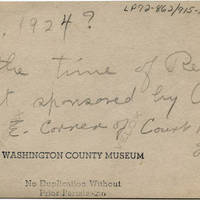 1924?
LP92-862/915-
the time of Re
t sponsored by
E. Corner of Court
WASHINGTON COUNTY MUSEUM
No Duplication Without
Prior Permission